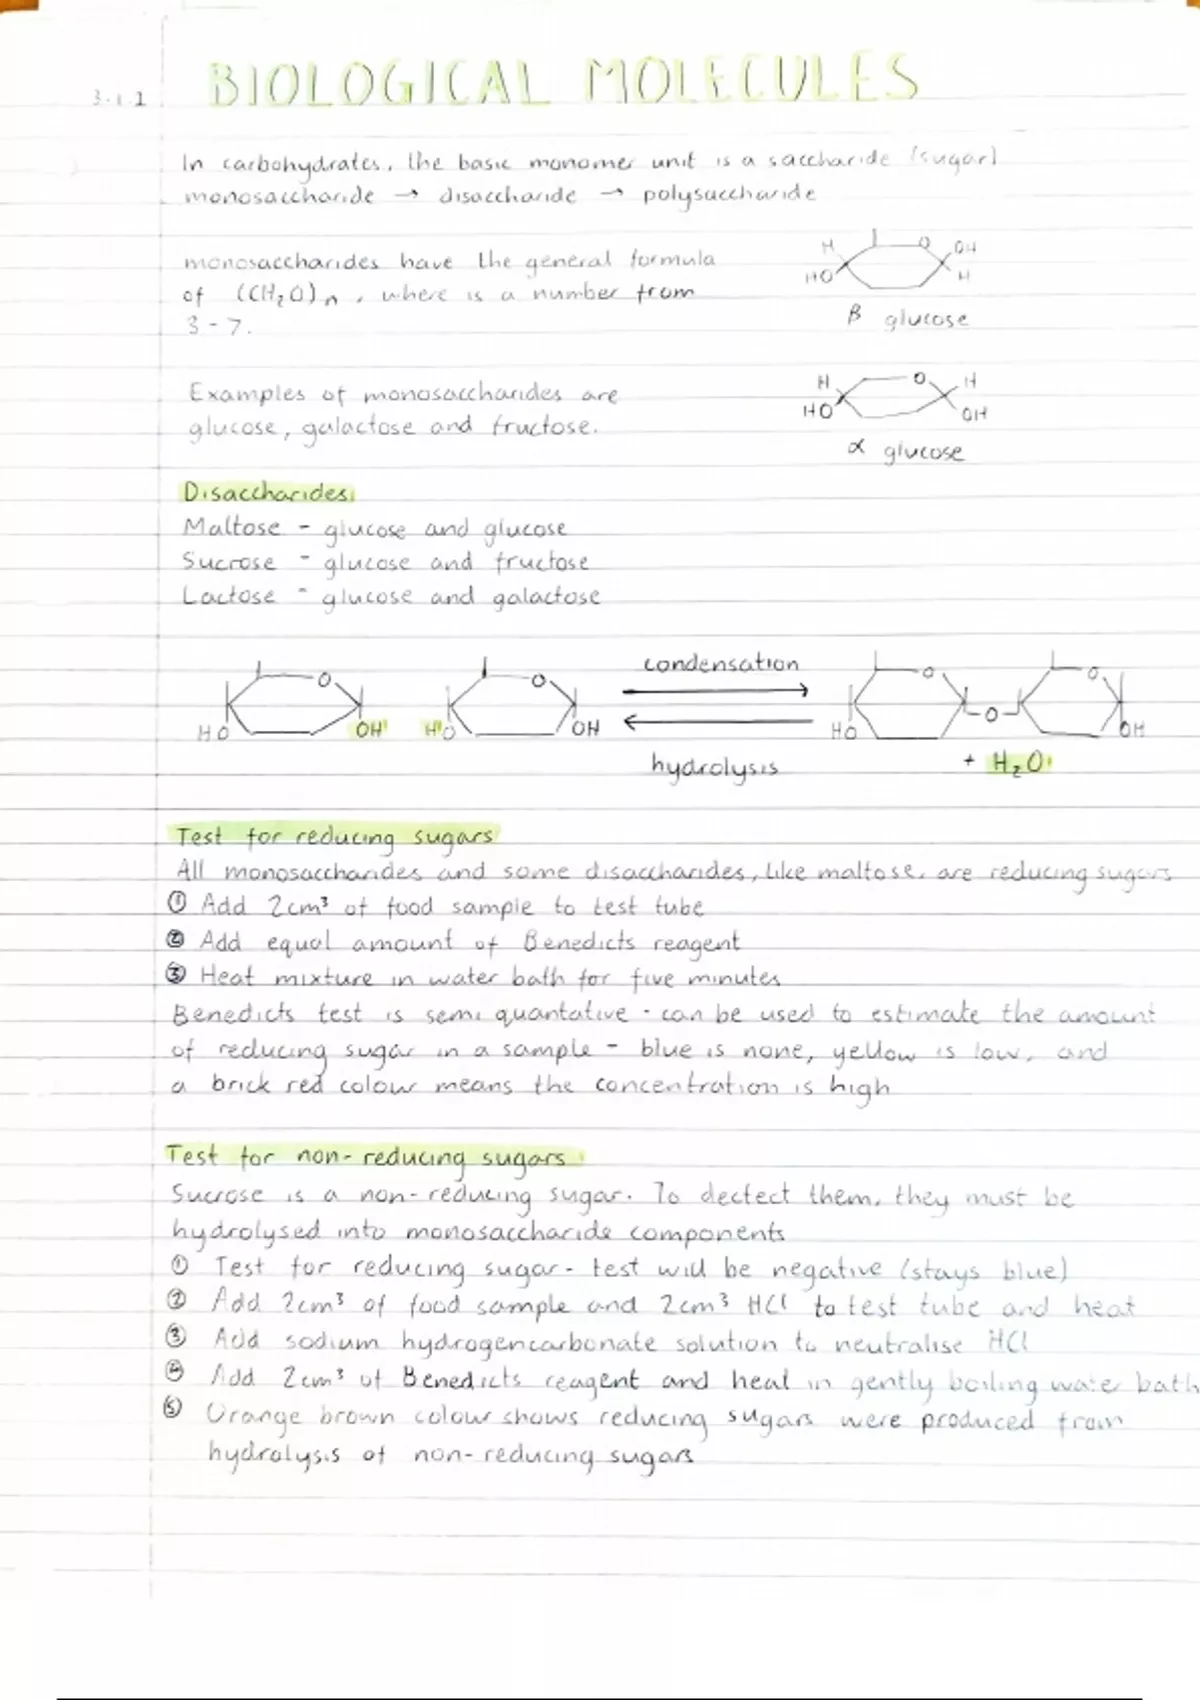 3.1.1 BIOLOGICAL MOLECULES
In carbohydrates, the basic monomer unit is a saccharide (sugar)
monosaccharide → disaccharide → polysaccharide
monosaccharides have the general formula
of (CH₂O)n, where is a number from
3-7.
H O OH
HO H
β glucose
Examples of monosaccharides are
glucose, galactose and fructose.
H O H
HO OH
α glucose
Disaccharides
Maltose - glucose and glucose
Sucrose - glucose and fructose
Lactose - glucose and galactose
condensation
O O O O
HO OH HO OH HO O OH
hydrolysis + H₂O
Test for reducing sugars
All monosaccharides and some disaccharides, like maltose, are reducing sugars
① Add 2cm³ of food sample to test tube
② Add equal amount of Benedicts reagent
③ Heat mixture in water bath for five minutes
Benedicts test is semi quantative - can be used to estimate the amount
of reducing sugar in a sample - blue is none, yellow is low, and
a brick red colour means the concentration is high
Test for non-reducing sugars
Sucrose is a non-reducing sugar. To dectect them, they must be
hydrolysed into monosaccharide components
① Test for reducing sugar - test will be negative (stays blue)
② Add 2cm³ of food sample and 2cm³ HCl to test tube and heat
③ Add sodium hydrogencarbonate solution to neutralise HCl
④ Add 2cm³ of Benedicts reagent and heat in gently boiling water bath
⑤ Orange brown colour shows reducing sugars were produced from
hydrolysis of non-reducing sugars